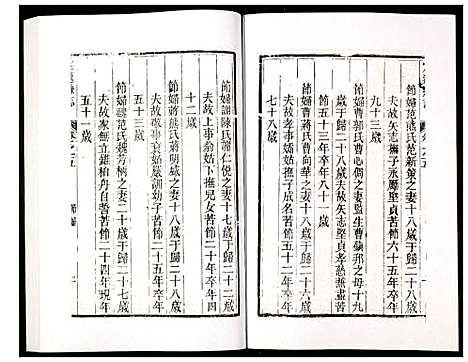 節婦范熊氏范新策之妻十八歲于歸二十八歲
夫故矢志撫子永釅堅貞苦節六十五年卒年
九十三歲
節婦曹郭氏曹心偶之妻監生曹鎭邦之母十九
歲于歸二十八歲夫故矢志堅貞孝慈兼盡苦
節五十三年卒年八十一歲
節婦曹蔣氏曹向華之妻十八歲于歸二十七歲
夫故事孀姑撫子成名苦節五十二年卒年
七十八歲
節婦謝陳氏謝仁悅之妻十七歲于歸二十二歲
夫故上事翁姑下撫兒女苦節二十年卒年四
十二歲
節婦蔣熊氏蔣明威之妻十八歲于歸二十六歲
夫故敬事衰姑嚴訓幼子苦節二十五年卒年
五十一歲
節婦魏范氏魏芳柄之妻二十歲于歸二十七歲
夫故家無立錐柏舟自苦節二十四年現年
五十一歲
卷之五
節婦